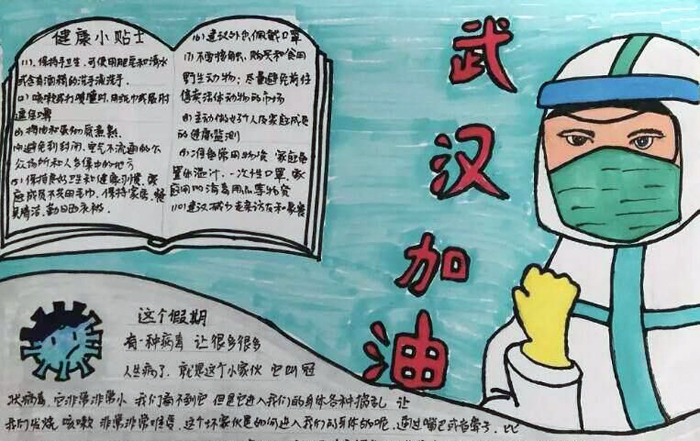 健康小贴士
(1).保持手卫生,可使用肥皂和清水
或含有酒精的洗手液洗手.
(2)咳嗽或打喷嚏时,用纸巾或屈肘
遮住口鼻
(3)将肉和蛋彻底煮熟
(4)避免到封闭、空气不流通的公
众场所和人多集中的地方
(5)保持良好卫生和健康习惯,家
庭成员不共用毛巾,保持家居、餐
具清洁,勤晒衣被。
(6)建议外出佩戴口罩
(7)不要接触、购买和食用
野生动物;尽量避免前往
售卖活体动物的市场
(8)主动做好个人及家庭成员
的健康监测
(9)准备常用物资 家庭备
置体温计,一次性口罩,家
庭用的消毒用品等物资
(10)建议减少走亲访友和聚餐
武
汉
加
油
这个假期
有一种病毒 让很多很多
人生病了.就是这个小家伙 它叫冠
状病毒,它非常非常小 我们看不到它 但是它进入我们的身体各种捣乱 让
我们发烧 咳嗽 非常非常难受,这个坏家伙是如何进入我们的身体的呢,通过嘴巴或者鼻子,比